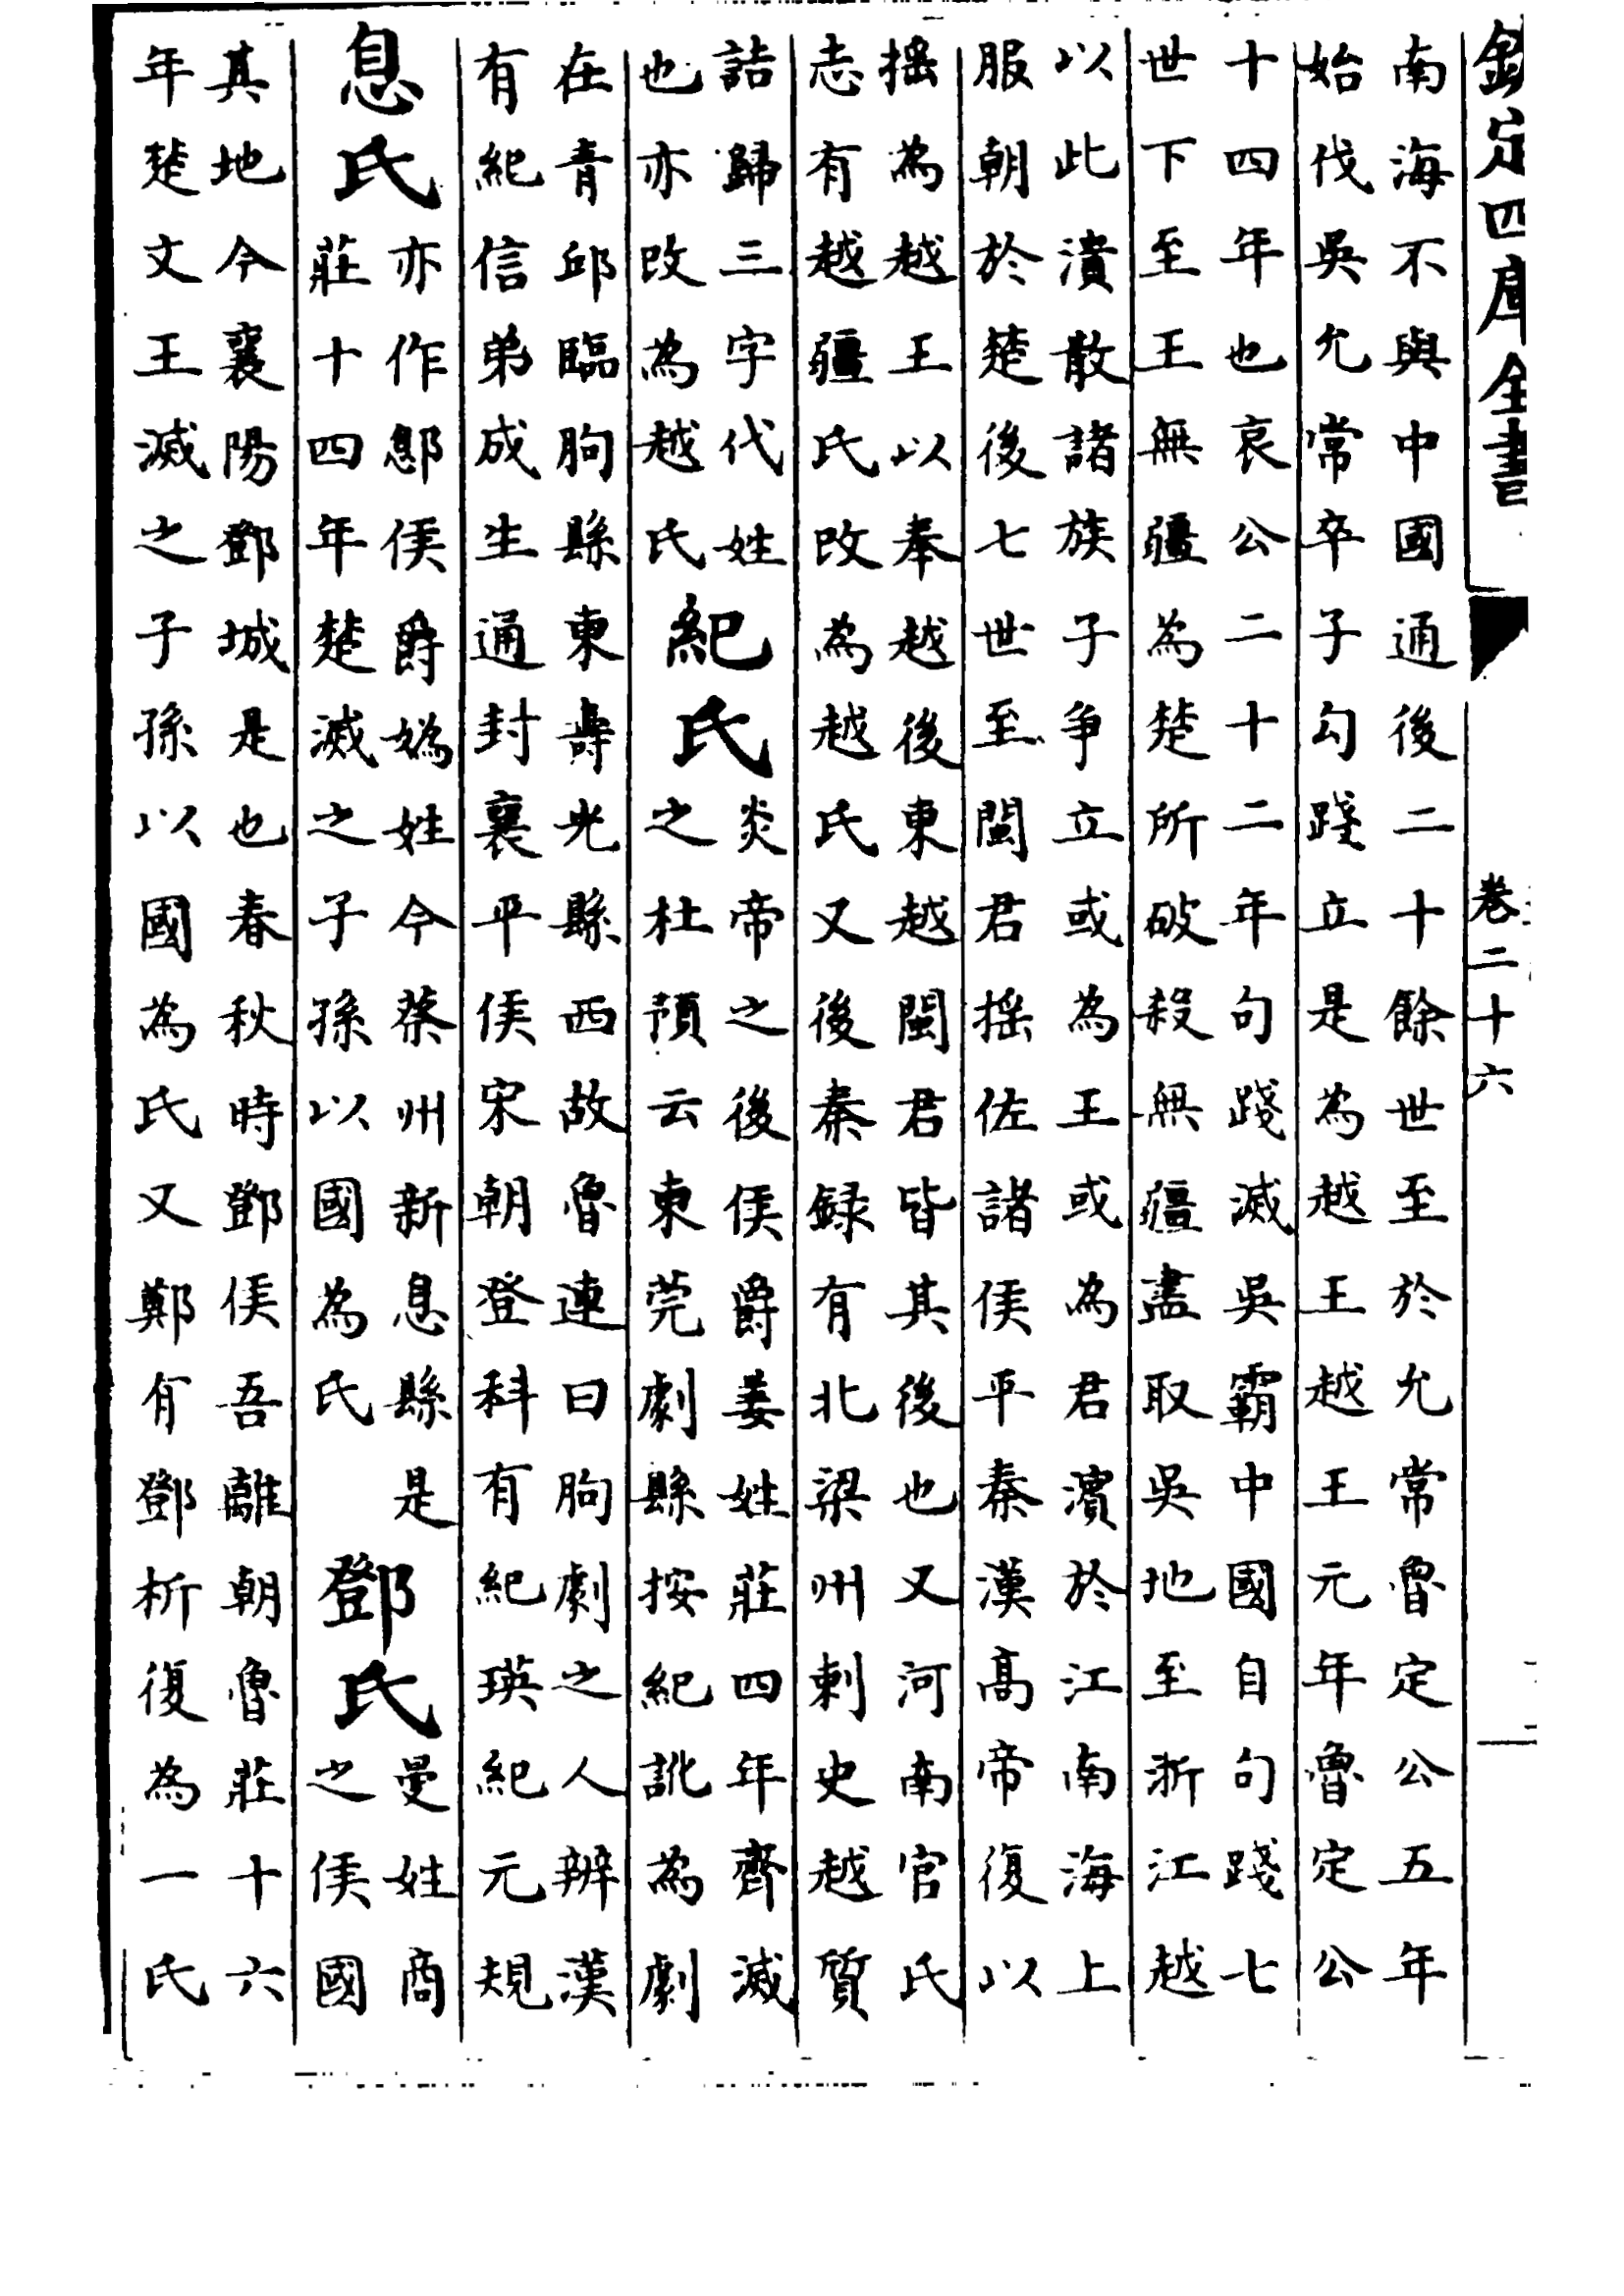 欽定四庫全書
卷二十六
南海不與中國通後二十餘世至於允常魯定公五年
始伐吳允常卒子勾踐立是為越王越王元年魯定公
十四年也哀公二十二年句踐滅吳霸中國自句踐七
世下至王無疆為楚所破殺無疆盡取吳地至浙江越
以此潰散諸族子爭立或為王或為君濱於江南海上
服朝於楚後七世至閩君搖佐諸侯平秦漢高帝復以
搖為越王以奉越後東越閩君皆其後也又河南官氏
志有越疆氏改為越氏又後秦録有北梁州刺史越質
詰歸三字代姓
也亦改為越氏
紀氏
炎帝之後侯爵姜姓莊四年齊滅
之杜預云東莞劇縣按紀訛為劇
在青邱臨朐縣東壽光縣西故魯連曰朐劇之人辨漢
有紀信弟成生通封襄平侯宋朝登科有紀瑛紀元規
息氏
亦作鄎侯爵媯姓今蔡州新息縣是
莊十四年楚滅之子孫以國為氏
鄧氏
曼姓商
之侯國
其地今襄陽鄧城是也春秋時鄧侯吾離朝魯莊十六
年楚文王滅之子孫以國為氏又鄭有鄧析復為一氏